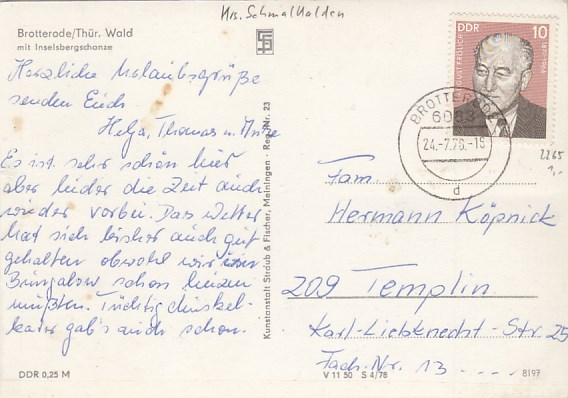 Krs. Schmalkalden
Brotterode/Thür. Wald
mit Inselsbergschanze
Herzliche Urlaubsgrüße
senden Euch
Helga, Thomas u.
Es ist sehr schön hier
aber leider die Zeit auch
wieder vorbei. Das Wetter
hat sich bisher auch gut
gehalten obwohl wir im
Bungalow schon heizen
mußten. Tüchtig
gab's auch schon.
DDR 0,25 M
Kunstanstalt Straub & Fischer, Meiningen - Reg.-Nr. 23
V 11 50 S 4/76
8197
DDR 10
BROTTERODE
6083
24.-7.78.-15
d
2265
1,-
Fam.
Hermann Köpnick
209 Templin
Karl-Liebknecht-Str 25
Fach-Nr. 13